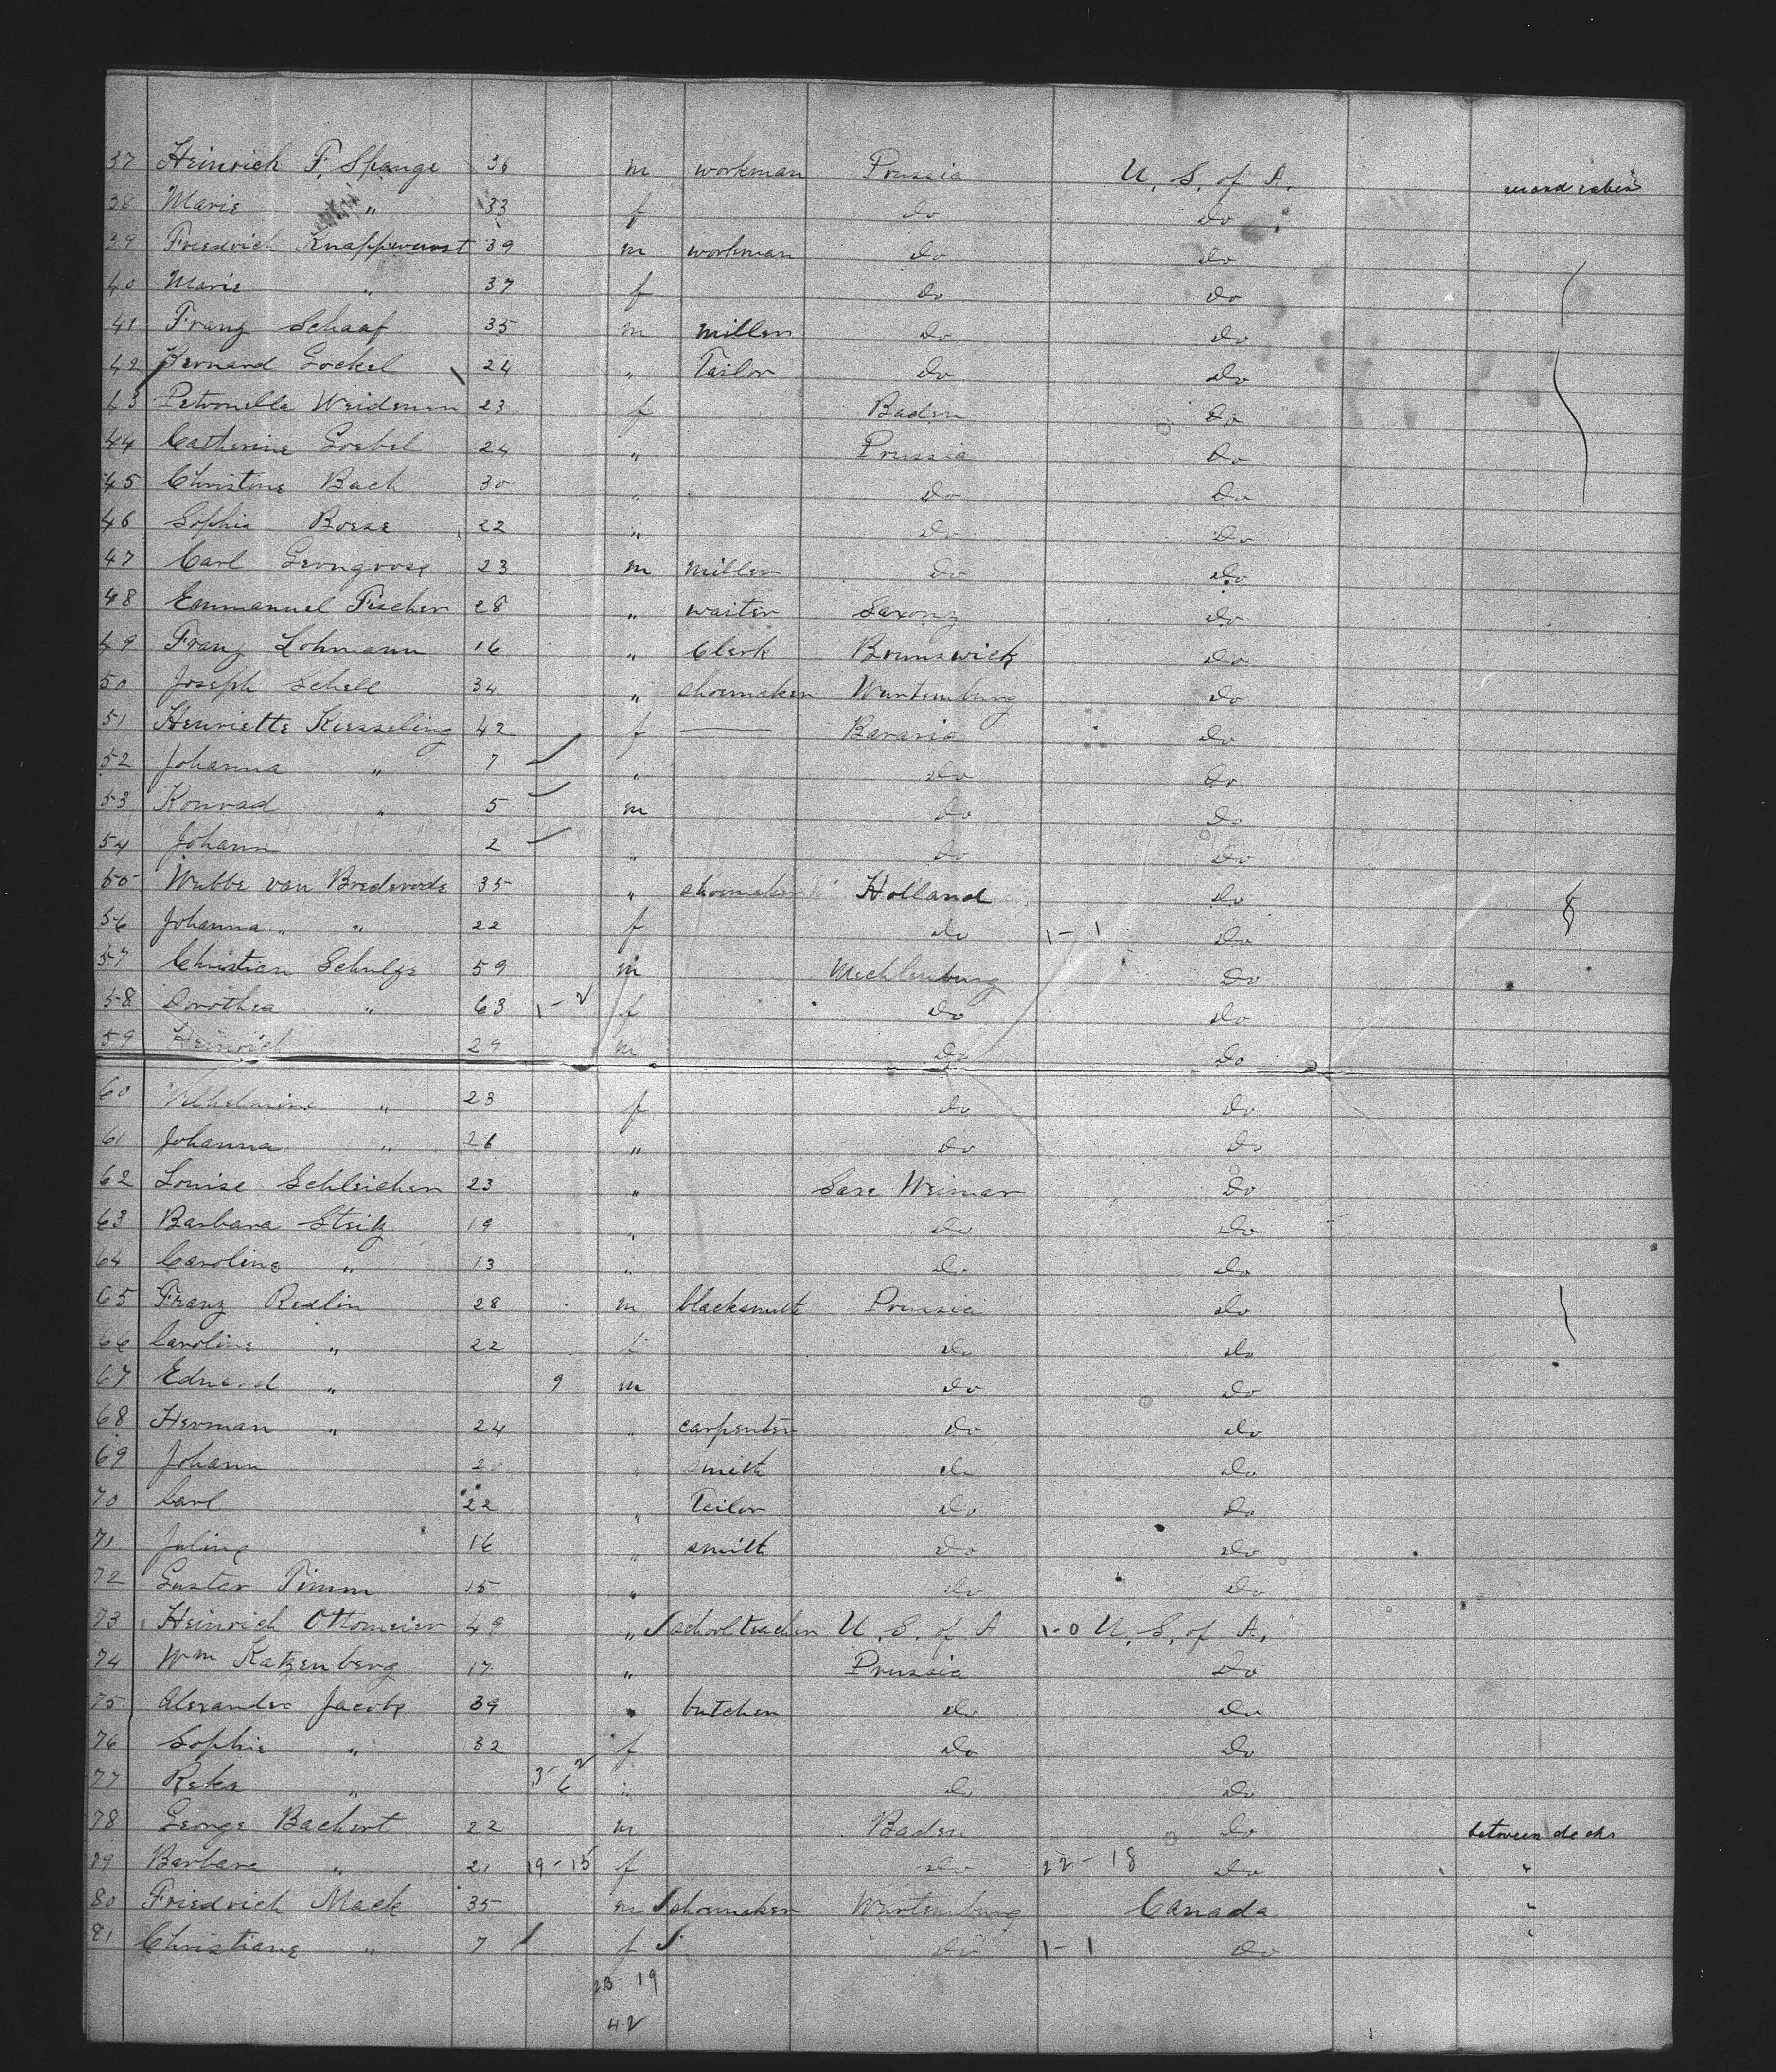 37 Heinrich F. Spange 36 m workman Prussia U. S. of A.
38 Marie " 33 f do do
39 Friedrich Knappwurst 39 m workman do do
40 Marie " 37 f do do
41 Franz Schaaf 35 m miller do do
42 Bernard Gockel 24 " Tailor do do
43 Petronella Weidemen 23 f Baden do
44 Catherine Goebel 24 " Prussia do
45 Christine Bach 30 " do do
46 Sophie Boese 22 " do do
47 Carl Gerngrose 23 m miller do do
48 Emmanuel Fischer 28 " waiter Saxony do
49 Franz Lohmann 16 " Clerk Brunswick do
50 Joseph Schell 34 " shoemaker Wurtemburg do
51 Henriette Kiesseling 42 f — Bavaria do
52 Johanna " 7 " do do
53 Konrad " 5 m do do
54 Johann 2 " do do
55 Wubbe van Brederode 35 " shoemaker Holland do
56 Johanna " " 22 f do 1-1 do
57 Christian Schulze 59 m Mechlenburg do
58 Dorothea " 63 1-2 f do do
59 Heinrich 29 m do do
60 Wilhelmine " 23 f do do
61 Johanna " 26 " do do
62 Louise Schleicher 23 " Saxe Weimar do
63 Barbara Steitz 19 " do do
64 Caroline " 13 " do do
65 Franz Redlin 28 m blacksmith Prussia do
66 Caroline " 22 f do do
67 Eduard " 9 m do do
68 Herman " 24 " carpenter do do
69 Johann " smith do do
70 Carl 22 " Tailor do do
71 Juline 16 " smith do do
72 Gustav Timm 15 " do do
73 Heinrich Ottomeier 49 " schoolteacher U. S. of A 1-0 U. S. of A.
74 Wm Katzenberg 17 " Prussia do
75 Alexander Jacobs 39 " butcher do do
76 Sophie " 32 f do do
77 Reka " 3-6 2 " do do
78 George Bachert 22 m Baden do between decks
79 Barbara " 21 19-15 f do 22-18 do "
80 Friedrich Mack 35 m shoemaker Wurtemburg Canada "
81 Christiane " 7 f do 1-1 do "
23 19
42